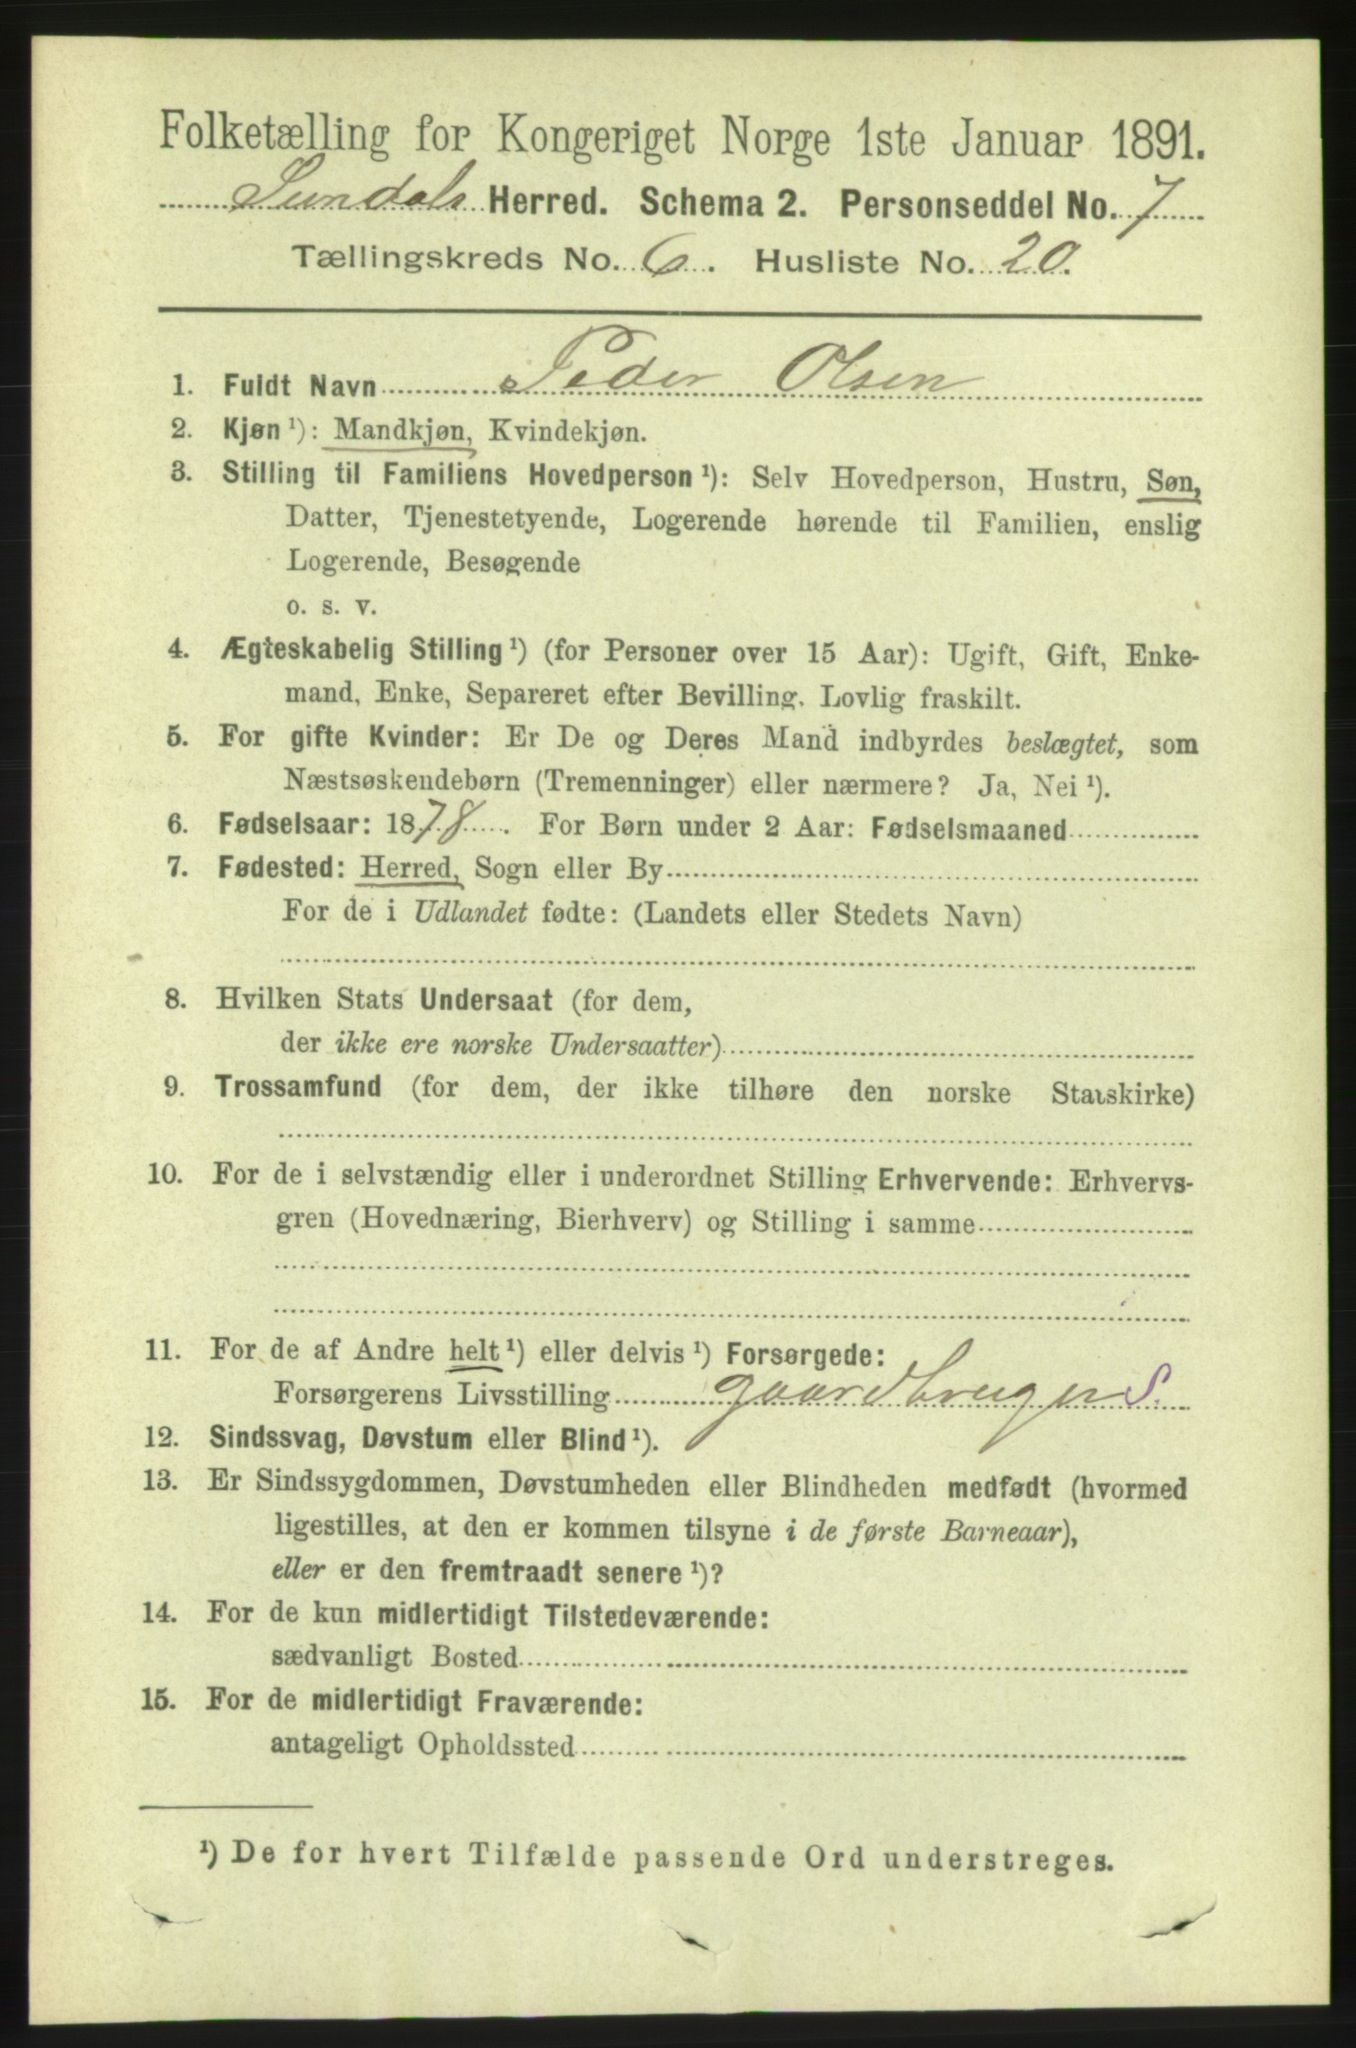 Folketælling for Kongeriget Norge 1ste Januar 1891.
Sundals Herred. Schema 2. Personseddel No. 7
Tællingskreds No. 6. Husliste No. 20.
1. Fuldt Navn Peder Olsen
2. Kjøn ¹): Mandkjøn, Kvindekjøn.
3. Stilling til Familiens Hovedperson ¹): Selv Hovedperson, Hustru, Søn,
Datter, Tjenestetyende, Logerende hørende til Familien, enslig
Logerende, Besøgende
o. s. v.
4. Ægteskabelig Stilling ¹) (for Personer over 15 Aar): Ugift, Gift, Enke-
mand, Enke, Separeret efter Bevilling. Lovlig fraskilt.
5. For gifte Kvinder: Er De og Deres Mand indbyrdes beslægtet, som
Næstsøskendebørn (Tremenninger) eller nærmere? Ja, Nei ¹).
6. Fødselsaar: 1878. For Børn under 2 Aar: Fødselsmaaned
7. Fødested: Herred, Sogn eller By
For de i Udlandet fødte: (Landets eller Stedets Navn)
8. Hvilken Stats Undersaat (for dem,
der ikke ere norske Undersaatter)
9. Trossamfund (for dem, der ikke tilhøre den norske Statskirke)
10. For de i selvstændig eller i underordnet Stilling Erhvervende: Erhvervs-
gren (Hovednæring, Bierhverv) og Stilling i samme
11. For de af Andre helt ¹) eller delvis ¹) Forsørgede:
Forsørgerens Livsstilling gaardbruger S.
12. Sindssvag, Døvstum eller Blind ¹).
13. Er Sindssygdommen, Døvstumheden eller Blindheden medfødt (hvormed
ligestilles, at den er kommen tilsyne i de første Barneaar),
eller er den fremtraadt senere ¹)?
14. For de kun midlertidigt Tilstedeværende:
sædvanligt Bosted
15. For de midlertidigt Fraværende:
antageligt Opholdssted
¹) De for hvert Tilfælde passende Ord understreges.